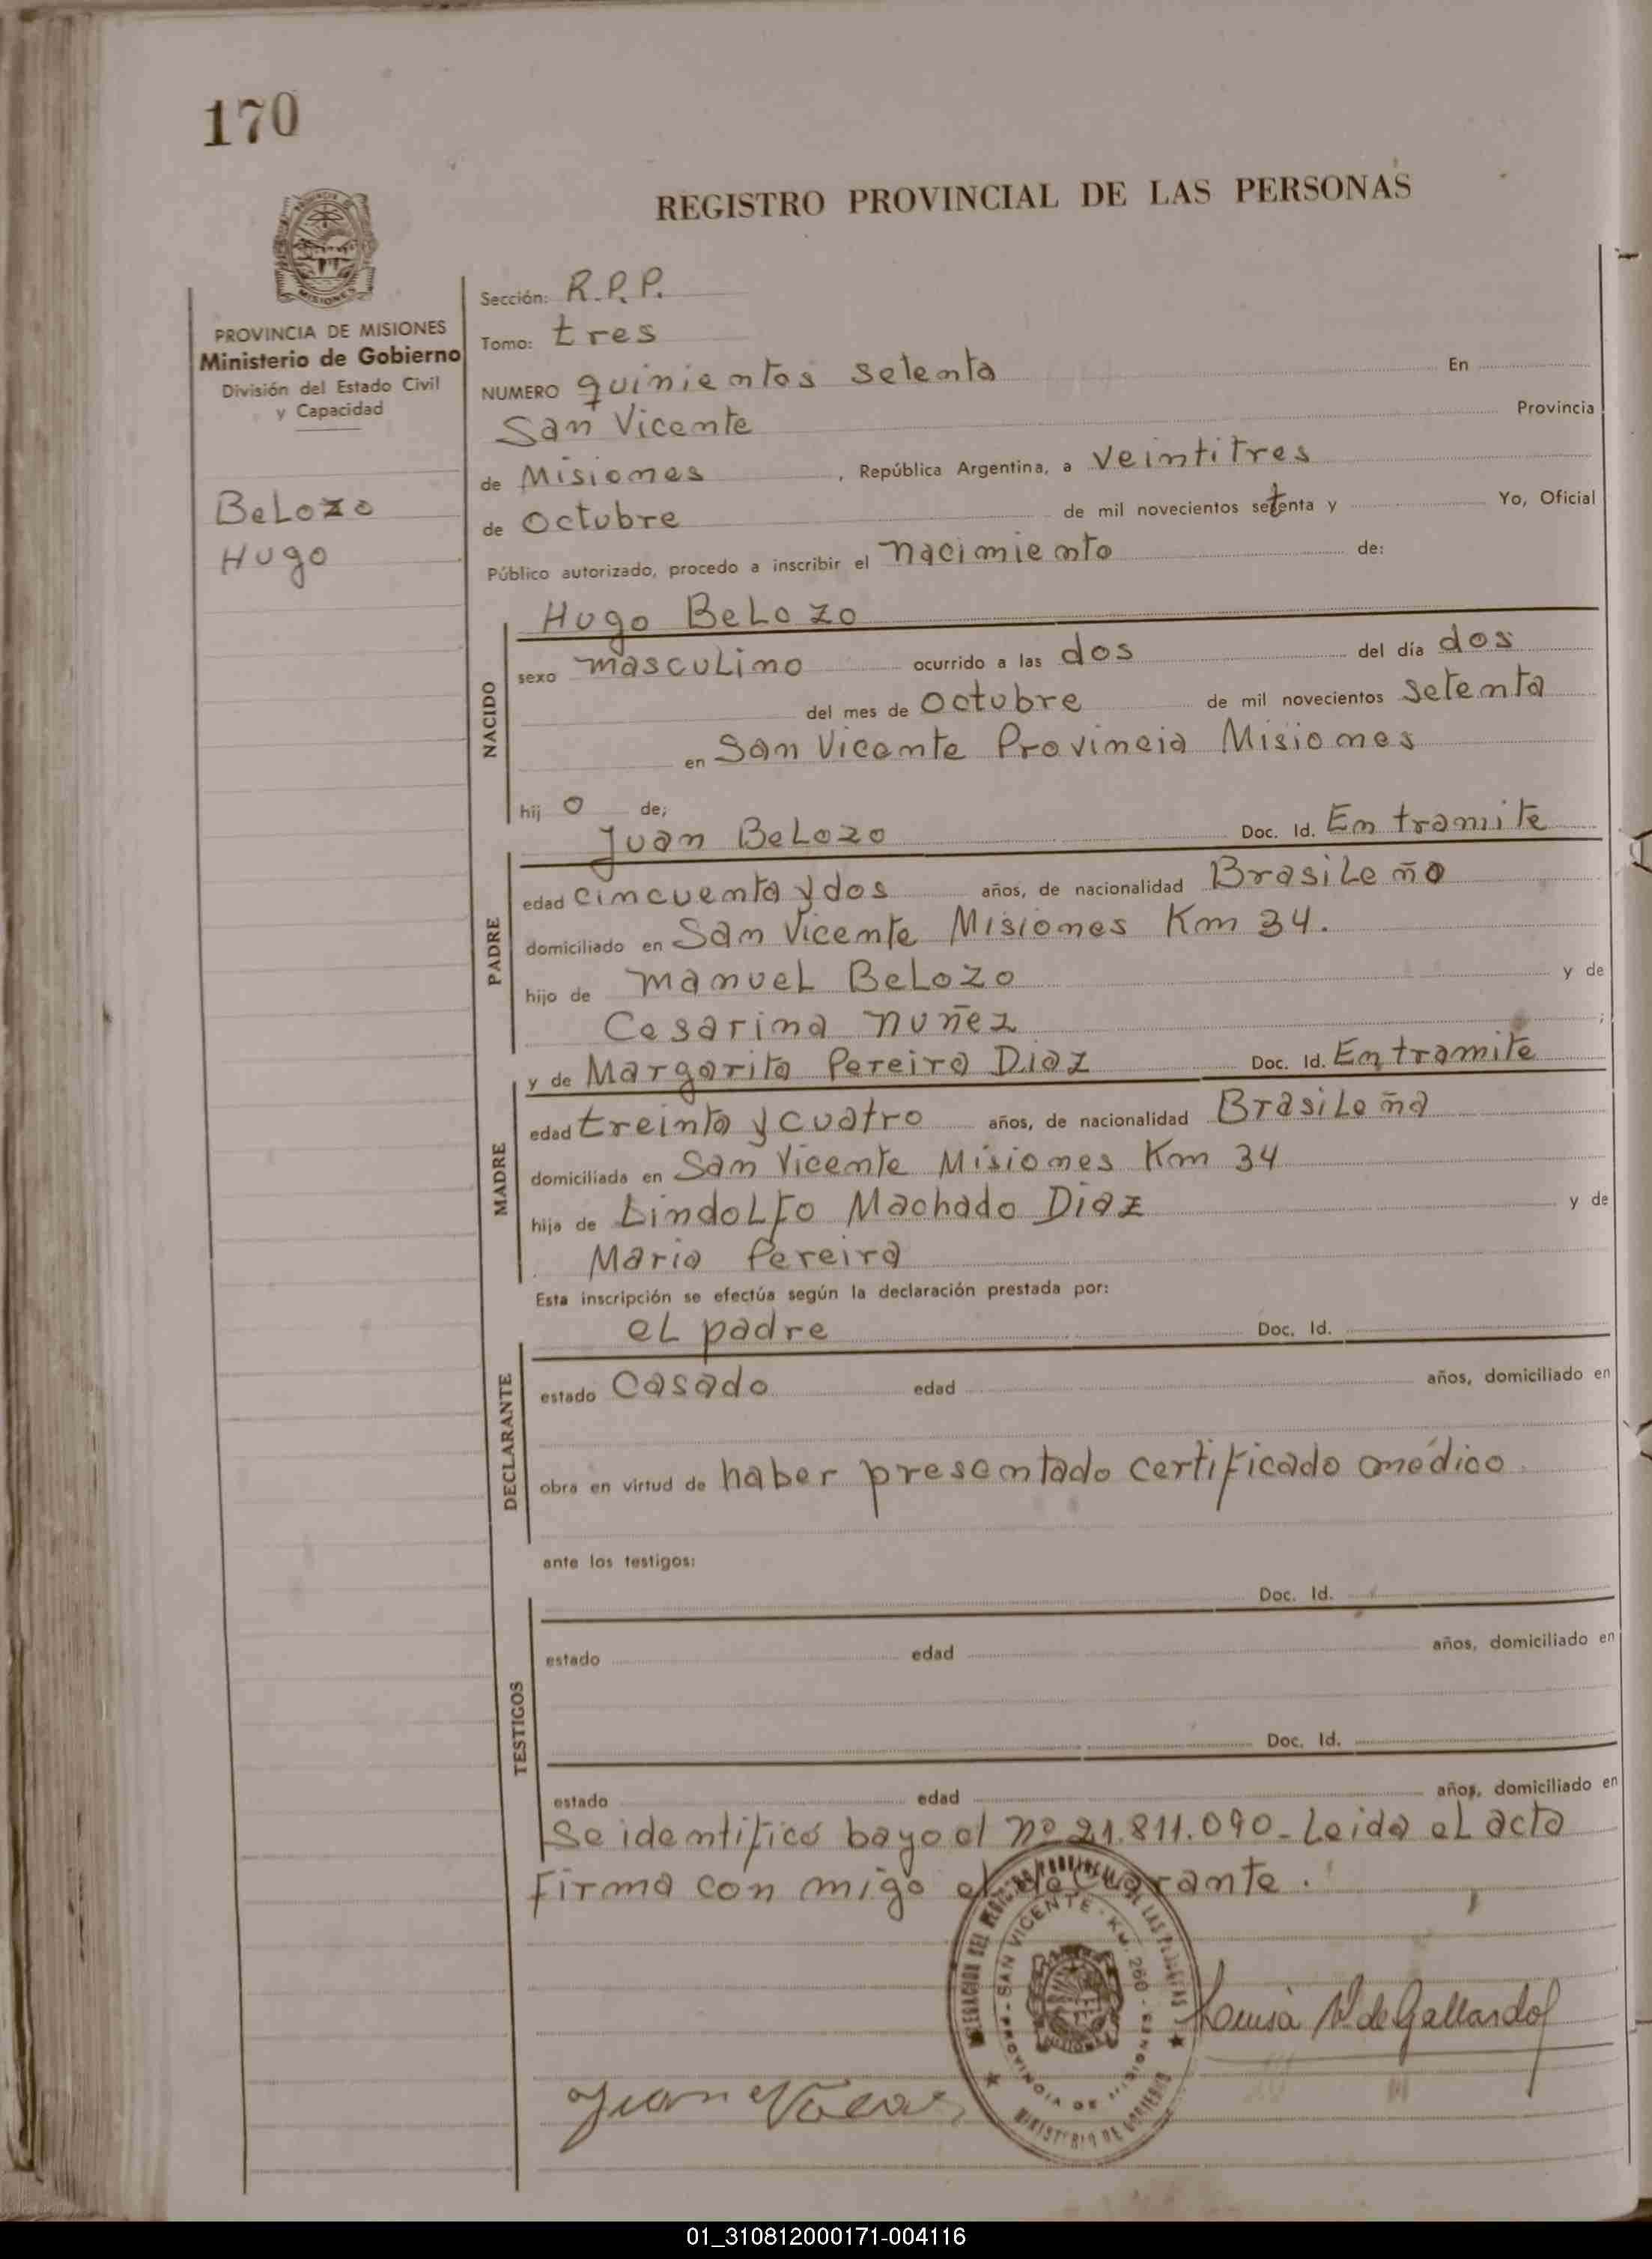 170
REGISTRO PROVINCIAL DE LAS PERSONAS
MISIONES
PROVINCIA DE MISIONES
Ministerio de Gobierno
División del Estado Civil
y Capacidad
Belozo
Hugo
Sección: R.P.P.
Tomo: tres
NUMERO quinientos setenta En
San Vicente Provincia
de Misiones, República Argentina, a veintitres
de Octubre de mil novecientos setenta y Yo, Oficial
Público autorizado, procedo a inscribir el nacimiento de:
Hugo Belozo
NACIDO
sexo masculino ocurrido a las dos del día dos
del mes de Octubre de mil novecientos setenta
en San Vicente Provincia Misiones
hij o de;
Juan Belozo Doc. Id. En tramite
PADRE
edad cincuenta y dos años, de nacionalidad Brasileño
domiciliado en San Vicente Misiones Km 34.
hijo de Manuel Belozo y de
Cesarina Nuñez;
y de Margarita Pereira Diaz Doc. Id. En tramite
MADRE
edad treinta y cuatro años, de nacionalidad Brasileña
domiciliada en San Vicente Misiones Km 34
hija de Lindolfo Machado Diaz y de
Maria Pereira
Esta inscripción se efectúa según la declaración prestada por:
el padre Doc. Id.
DECLARANTE
estado Casado edad años, domiciliado en
obra en virtud de haber presentado certificado médico
ante los testigos:
Doc. Id.
TESTIGOS
estado edad años, domiciliado en
Doc. Id.
estado edad años, domiciliado en
Se identificó bayo el nº 21.811.090_ Leida el acta
firma con migo el declarante.
DELEGACION DEL REGISTRO PROVINCIAL DE LAS PERSONAS
SAN VICENTE - KM. 260 - PROVINCIA DE MISIONES
MINISTERIO DE GOBIERNO
de Gallardo
Juan
01_310812000171-004116